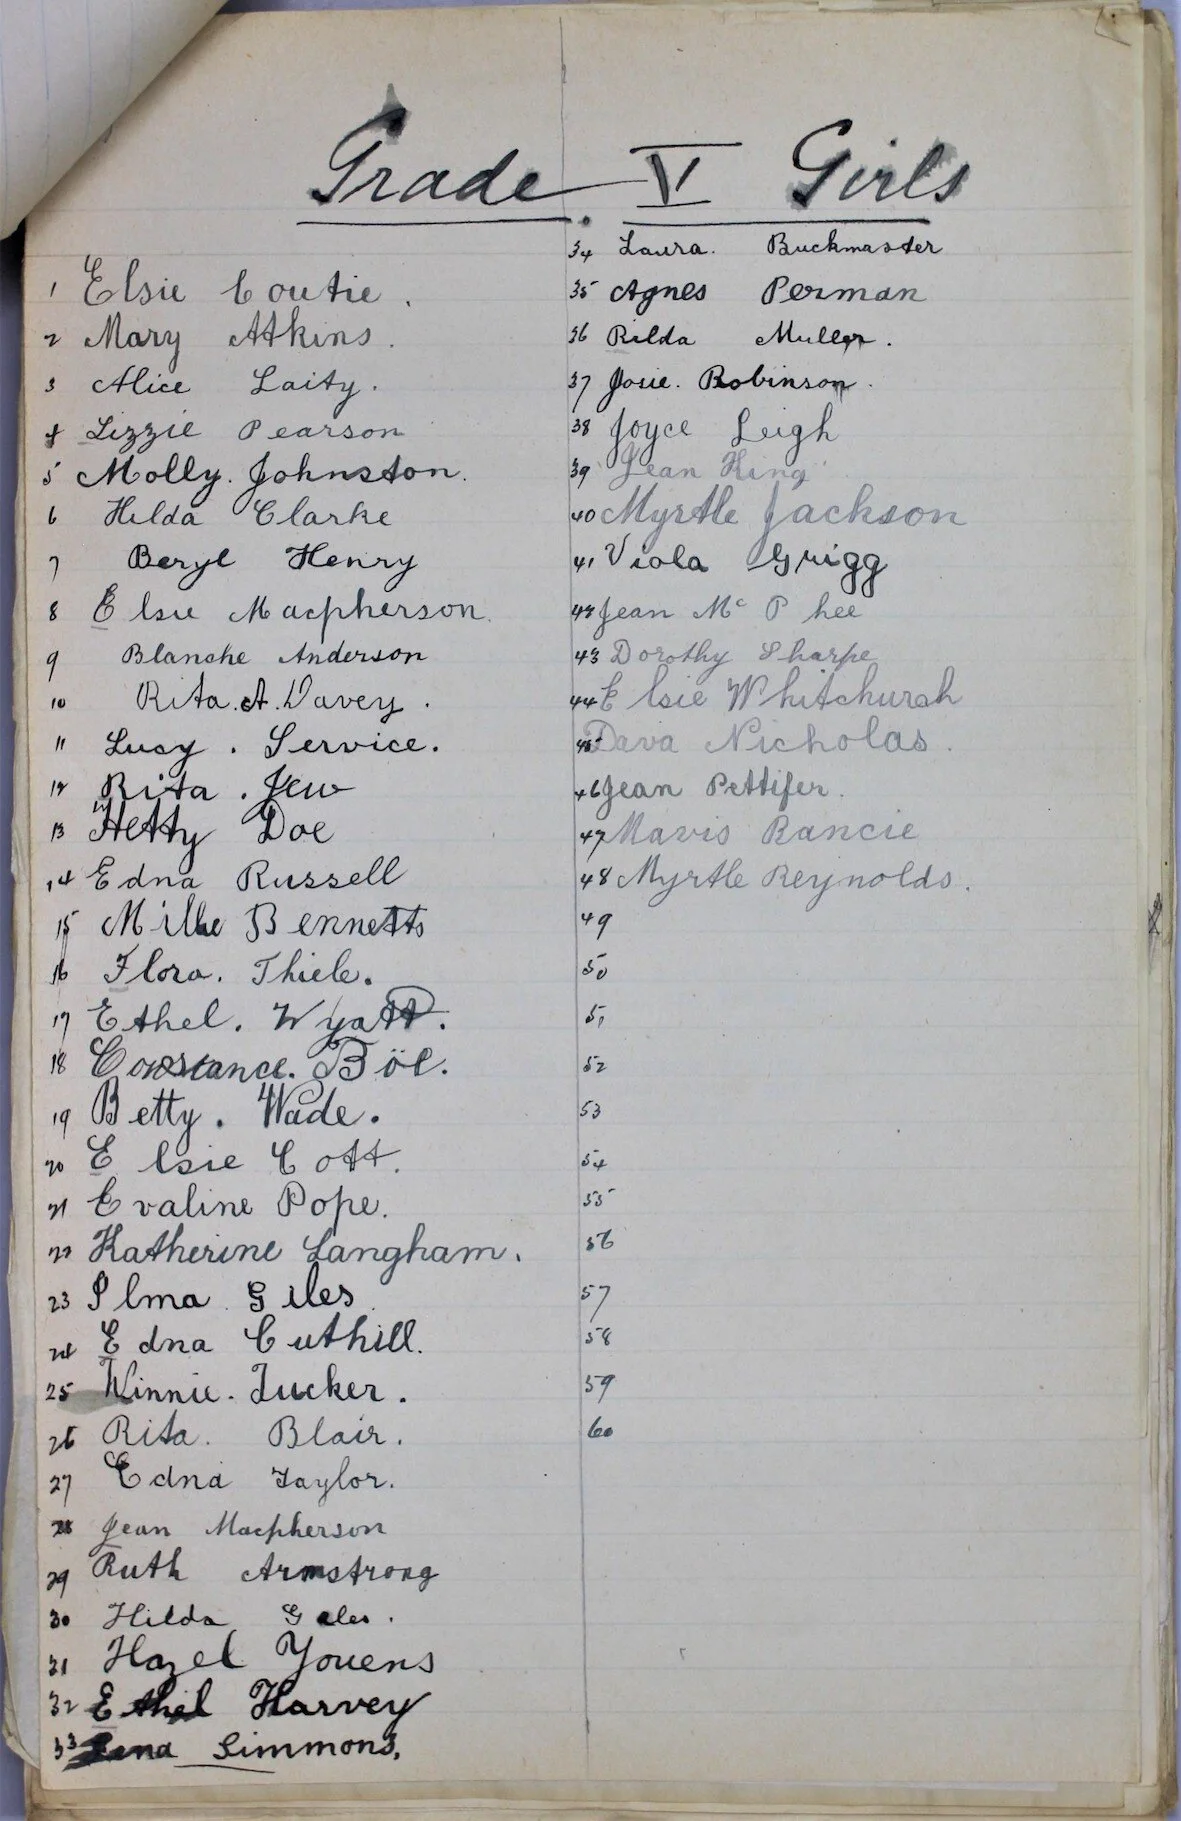 Grade V Girls
1 Elsie Coutie.
2 Mary Atkins.
3 Alice Laity.
4 Lizzie Pearson
5 Molly. Johnston.
6 Hilda Clarke
7 Beryl Henry
8 Elsie Macpherson.
9 Blanche Anderson
10 Rita. A. Davey.
11 Lucy. Service.
12 Rita. Jew
13 Hetty Doe
14 Edna Russell
15 Millie Bennetts
16 Flora. Thiele.
17 Ethel. Wyatt.
18 Constance. Böe.
19 Betty. Wade.
20 Elsie Cott.
21 Evaline Pope.
22 Katherine Langham.
23 Ilma Giles
24 Edna Cuthill.
25 Winnie. Tucker.
26 Rita. Blair.
27 Edna Taylor.
28 Jean Macpherson
29 Ruth Armstrong
30 Hilda Gales.
31 Hazel Youens
32 Ethel Harvey
33 Simmons.
34 Laura. Buckmaster
35 Agnes Perman
36 Rilda Muller.
37 Josie. Robinson.
38 Joyce Leigh
39 Jean King
40 Myrtle Jackson
41 Viola Grigg
42 Jean McPhee
43 Dorothy Sharpe
44 Elsie Whitchurch
45 Dava Nicholas.
46 Jean Pettifer.
47 Mavis Rancie
48 Myrtle Reynolds.
49
50
51
52
53
54
55
56
57
58
59
60